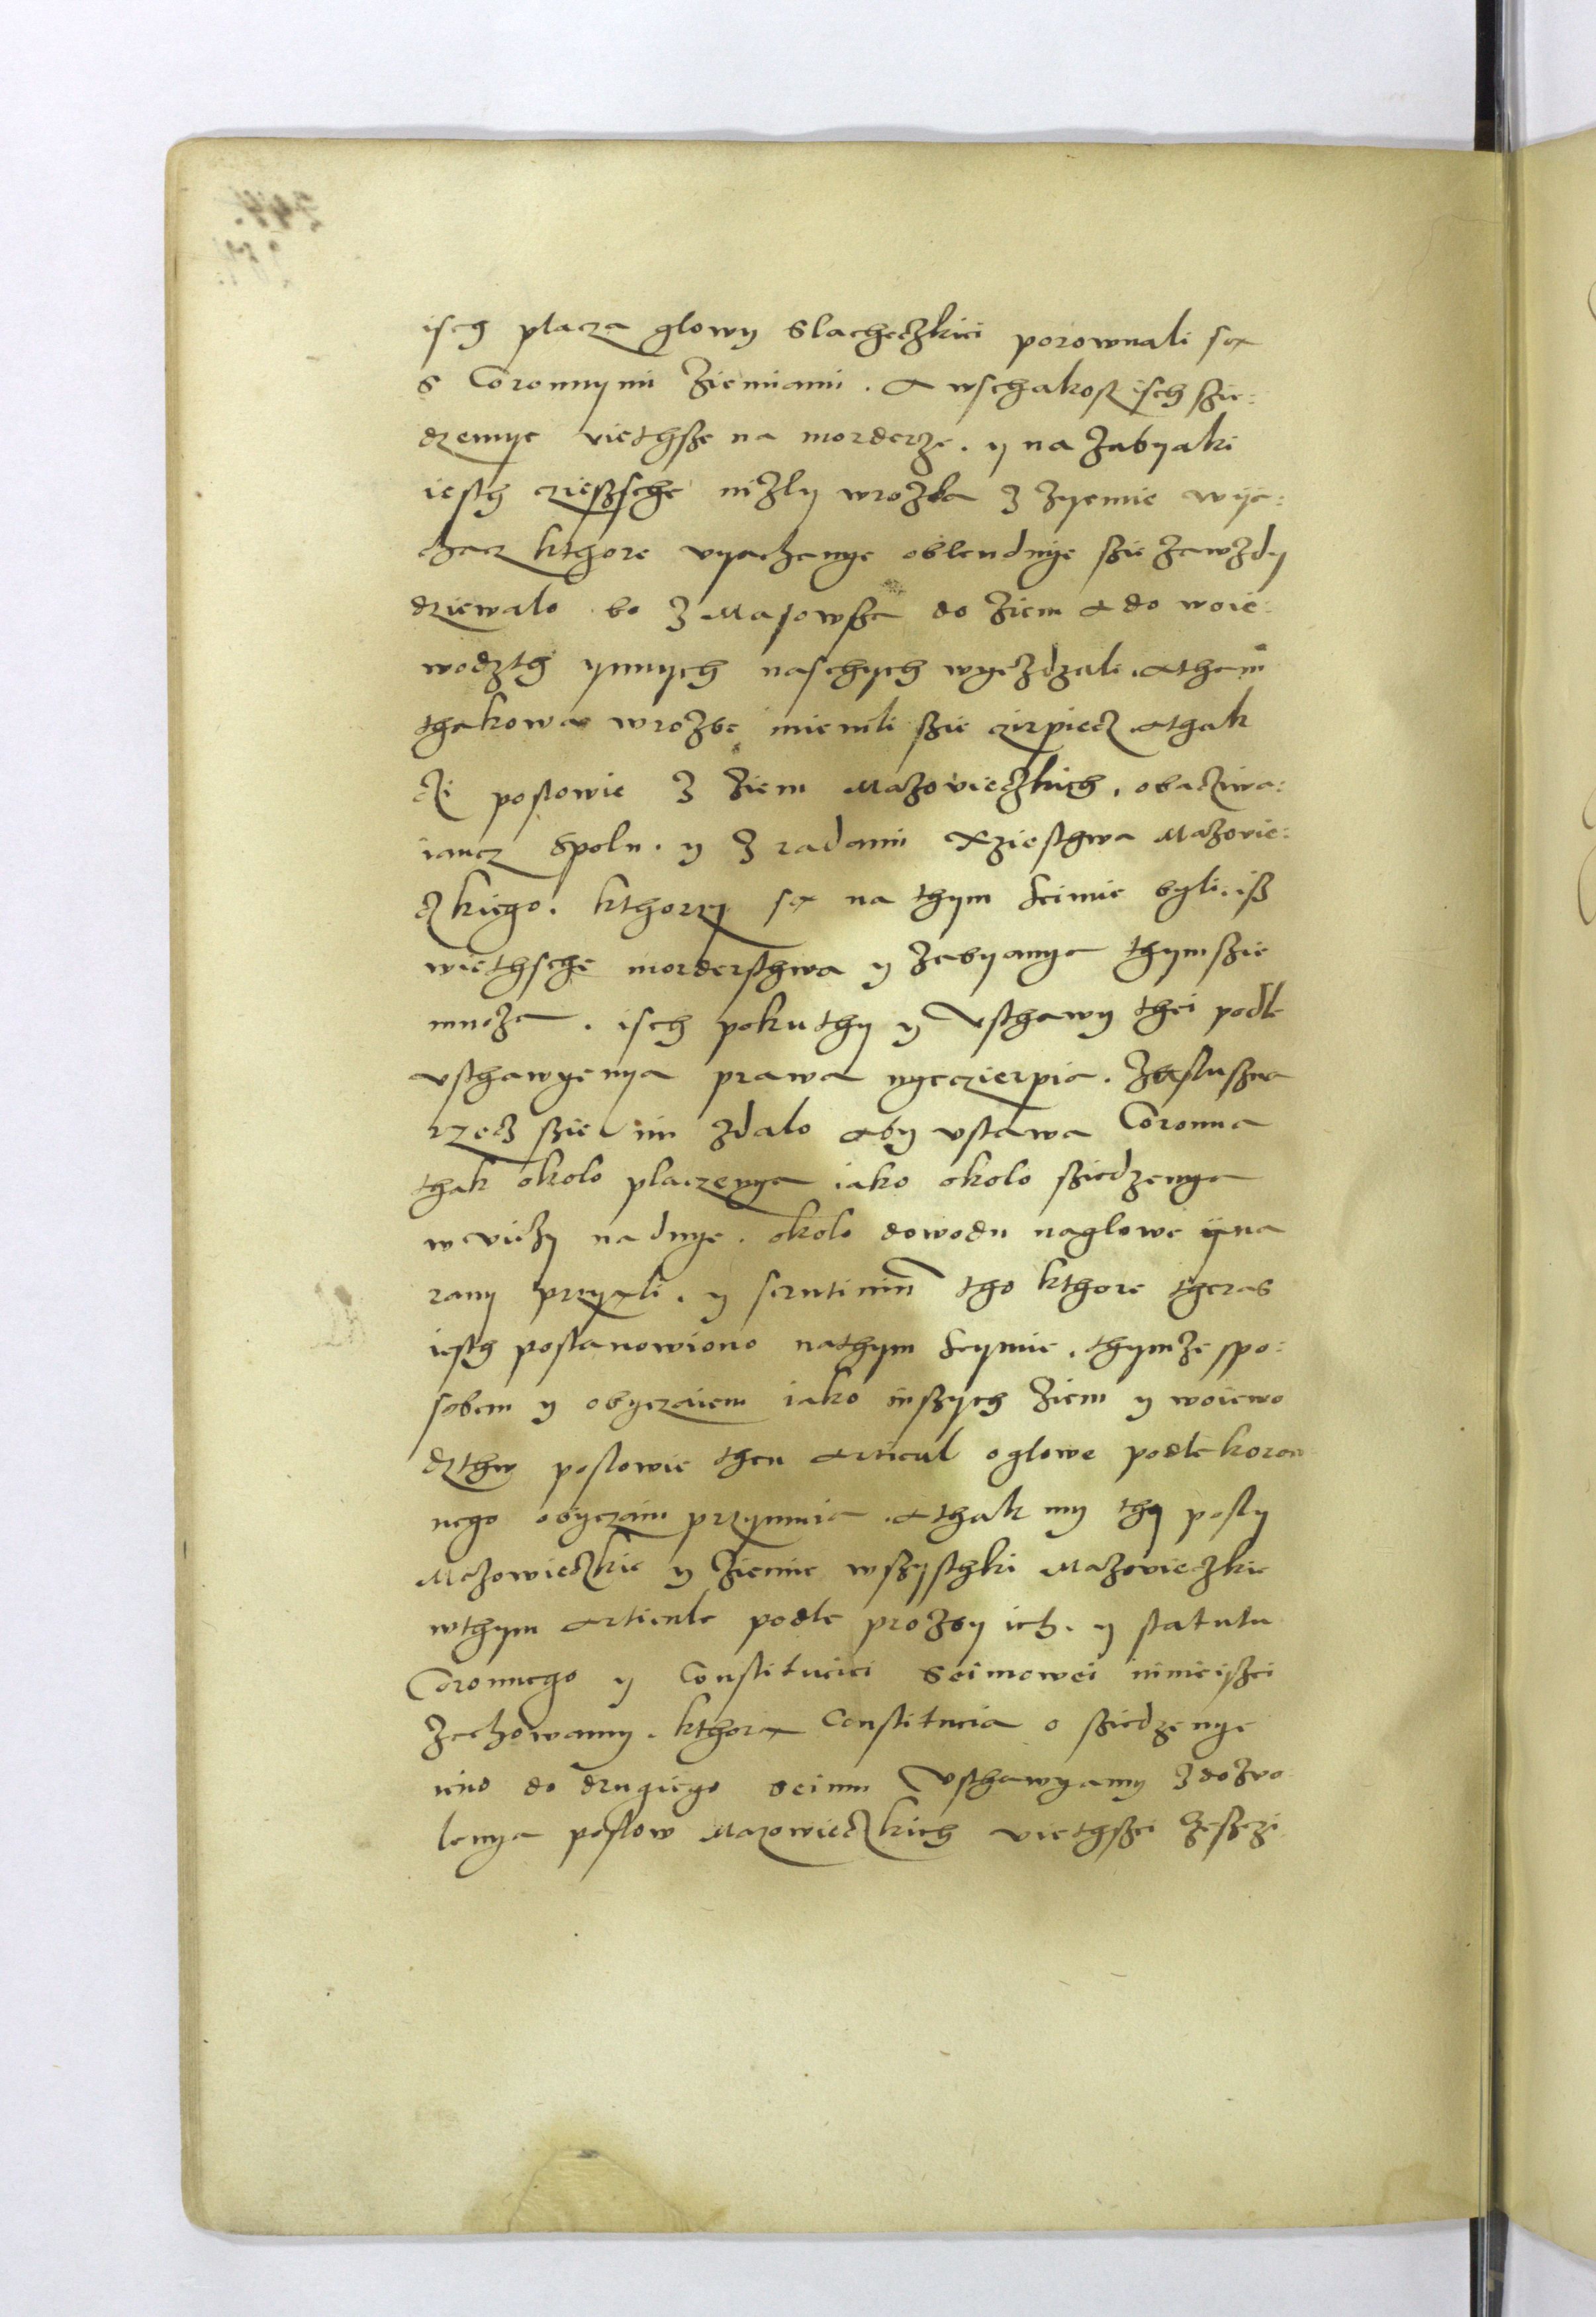 isch placza glowy Slacheczkiei porownali są
s Coronnymi Ziemiami . A wschakosz isch szie:
dzenye viethsze na morderze . y na Zabyaki
iesth czieszsche nizly wrozba z zyemie wyie:
chacz kthore vyachanye oblendnye szie zawzdy
dziewalo bo z Masowsza do Ziem a do woie:
wodzth ynnych naschych wyezdzali . a tham
thakowa wrozbe miewili szie czirpiecz . A thak
czi poslowie z Ziem Mazovieczkich , obacziwa:
iancz Spolu . y z radami Xziesthwa Mazovie:
czkiego . kthorzy są na thym Seimie byli . isz
wiethsche mordersthwa y zabyanya thym szie
mnoza . isch pokuthy y Vsthawy thei podle
vsthawyenya prawa nyeczierpia . Za sluszna
rzecz szie im zdalo aby vstawa Coronna
thak okolo placzenya iako okolo sziedzenya
w viezy na dnye . okolo dowodu na glowe y na
rany przyeli . y scrutinium tho kthore theras
iesth postanowiono na thym Seymie . thymze spo:
sobem y obyczaiem iako inszych Ziem y woiewo
dzthw poslowie then Articul o glowe podle koron
nego obyczaiu przymuia . A thak my thy posly
Mazowieczkie y Ziemie wszysthki Mazovieczkie
w thym Articule podle prozby ich . y statutu
Coronnego y Constituciei Seimowei ninieiszei
zachowamy . kthora Constitucia o sziedzenye
ieno do drugiego seimu Vsthawyamy z dozvo
lenya poslow Mazowieczkich viethszei